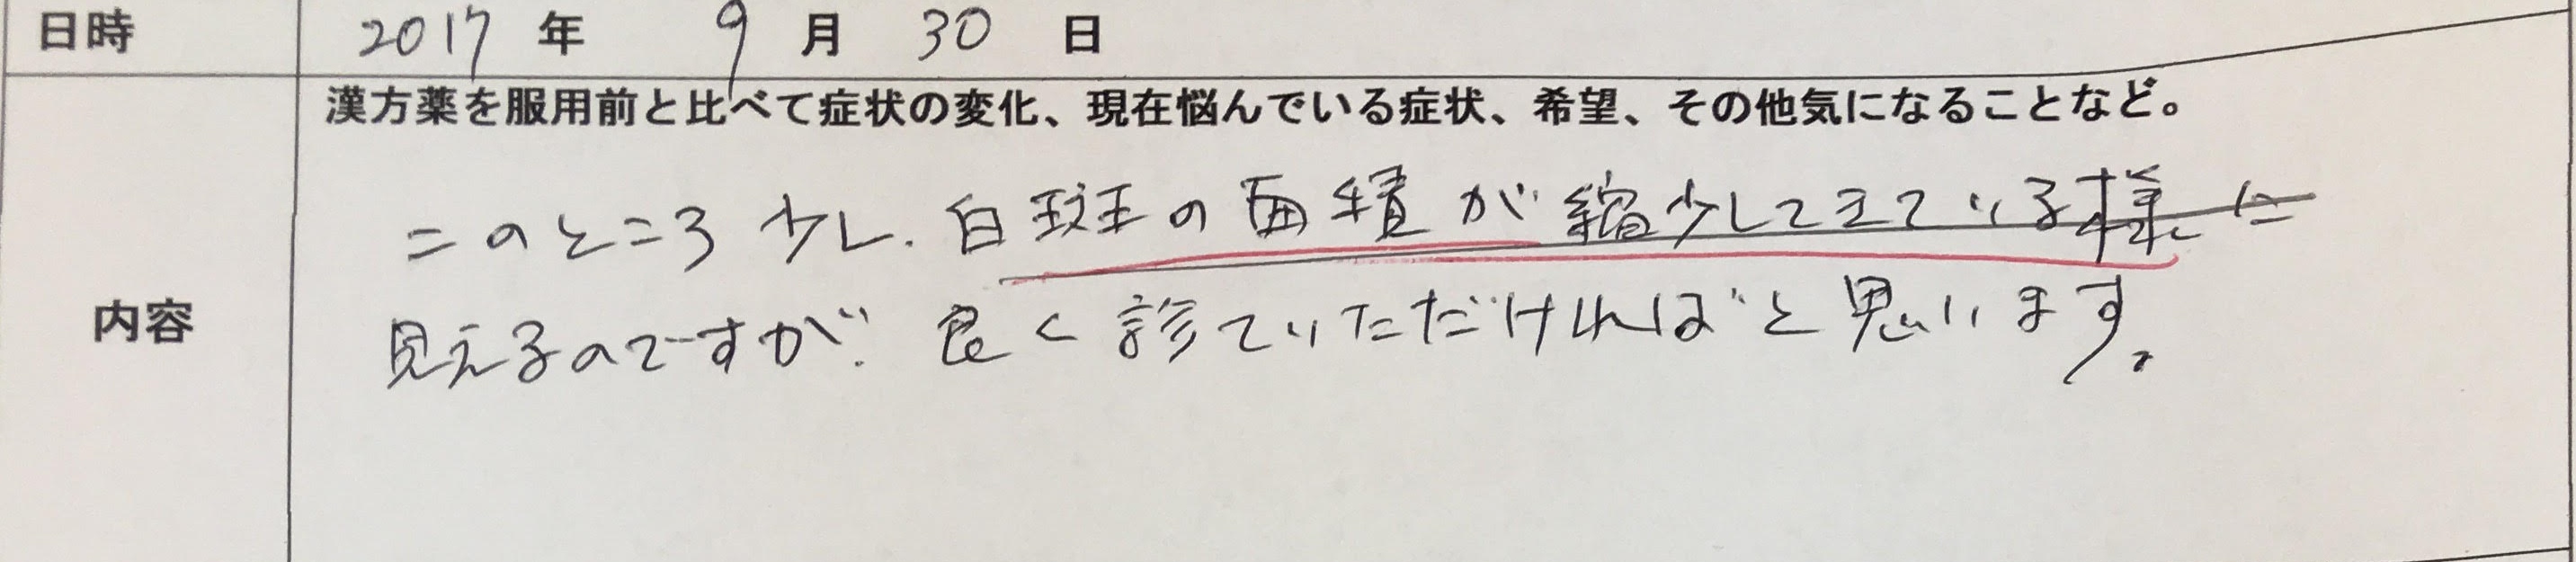 日時 2017 年 9 月 30 日
漢方薬を服用前と比べて症状の変化、現在悩んでいる症状、希望、その他気になることなど。
このところ少し、白斑の面積が縮少してきている様に
内容
見えるのですが、良く診ていただければと思います。